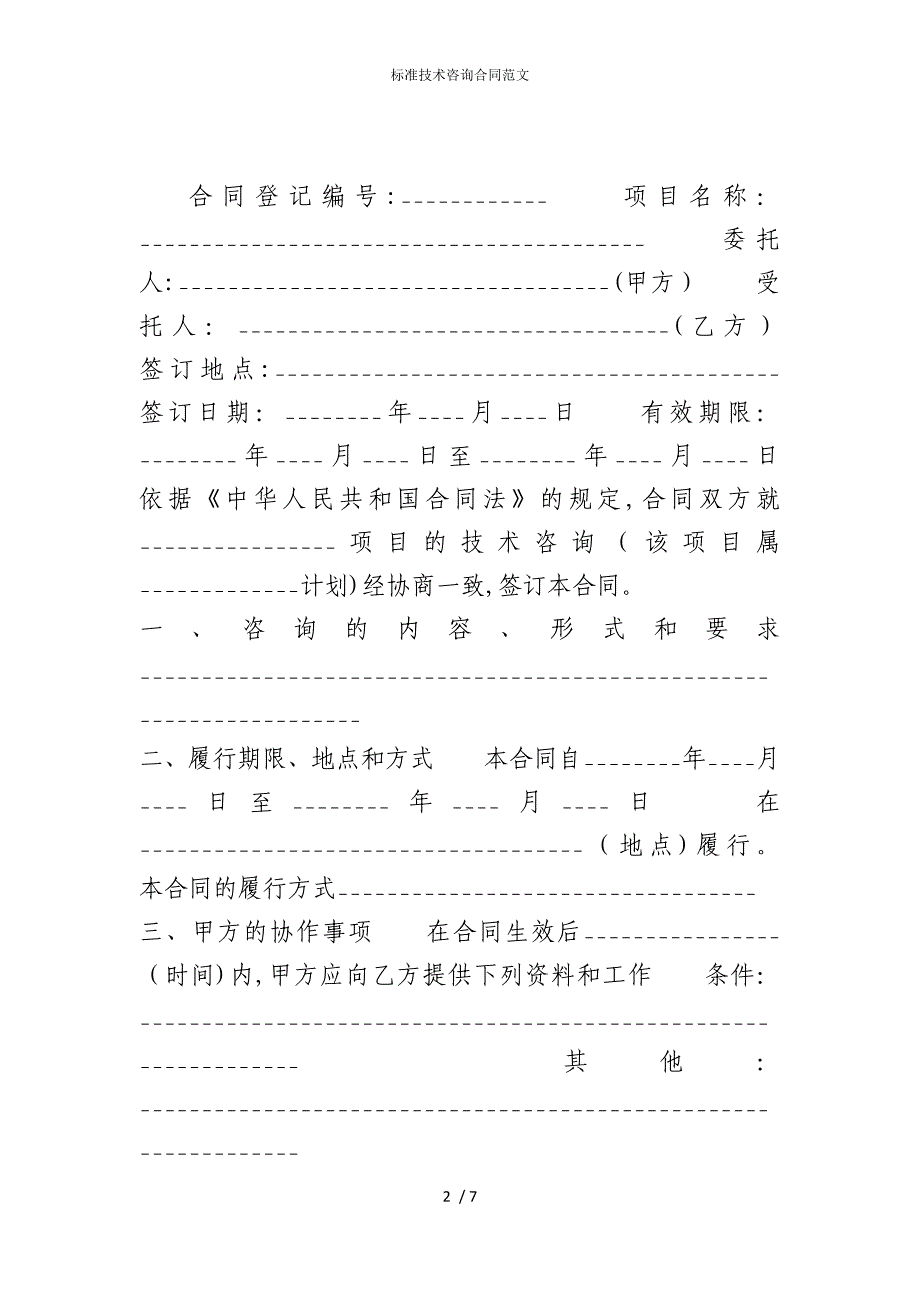 标准技术咨询合同范文
合同登记编号:____________ 项目名称:
_________________________________________ 委托
人:___________________________________(甲方) 受
托人: ___________________________________(乙方)
签订地点:_________________________________________
签订日期: ________年____月____日 有效期限:
________年____月____日至________年____月____日
依据《中华人民共和国合同法》的规定,合同双方就
________________项目的技术咨询(该项目属
_____________计划)经协商一致,签订本合同。
一、咨询的内容、形式和要求
___________________________________________________
__________________
二、履行期限、地点和方式 本合同自________年____月
____日至________年____月____日 在
____________________________________(地点)履行。
本合同的履行方式__________________________________
三、甲方的协作事项 在合同生效后________________
(时间)内,甲方应向乙方提供下列资料和工作 条件:
___________________________________________________
_____________ 其他:
___________________________________________________
_____________
2 / 7